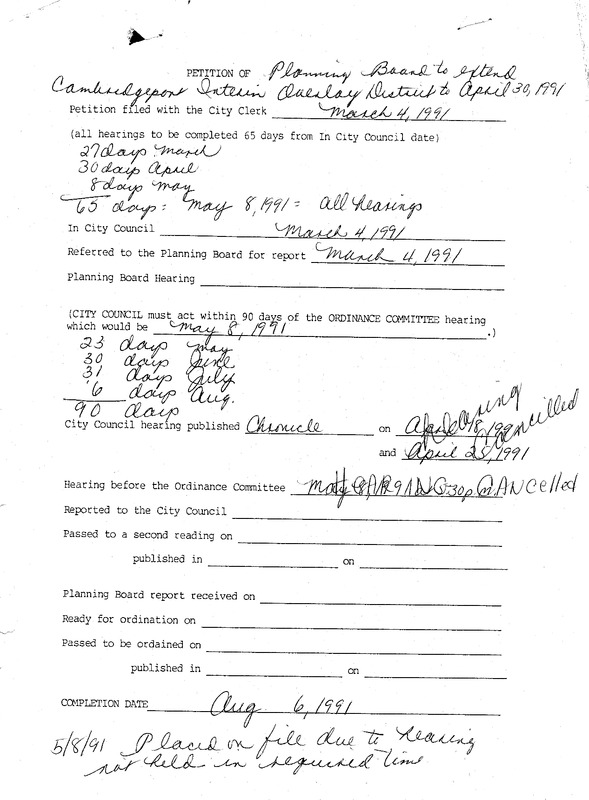 PETITION OF Planning Board to extend
Cambridgeport Interim Overlay District to April 30, 1991
Petition filed with the City Clerk March 4, 1991
(all hearings to be completed 65 days from In City Council date)
27 days March
30 days April
8 days May
65 days: May 8, 1991 = all hearings
In City Council March 4, 1991
Referred to the Planning Board for report March 4, 1991
Planning Board Hearing
(CITY COUNCIL must act within 90 days of the ORDINANCE COMMITTEE hearing
which would be May 8, 1991 .)
23 days May
30 days June
31 days July
6 days Aug.
90 days
City Council hearing published Chronicle on April 18, 1991
Hearing Cancelled
and April 25, 1991
Hearing before the Ordinance Committee CANCelled
Reported to the City Council
Passed to a second reading on
published in on
Planning Board report received on
Ready for ordination on
Passed to be ordained on
published in on
COMPLETION DATE Aug 6, 1991
5/8/91 Placed on file due to hearing
not held in required time